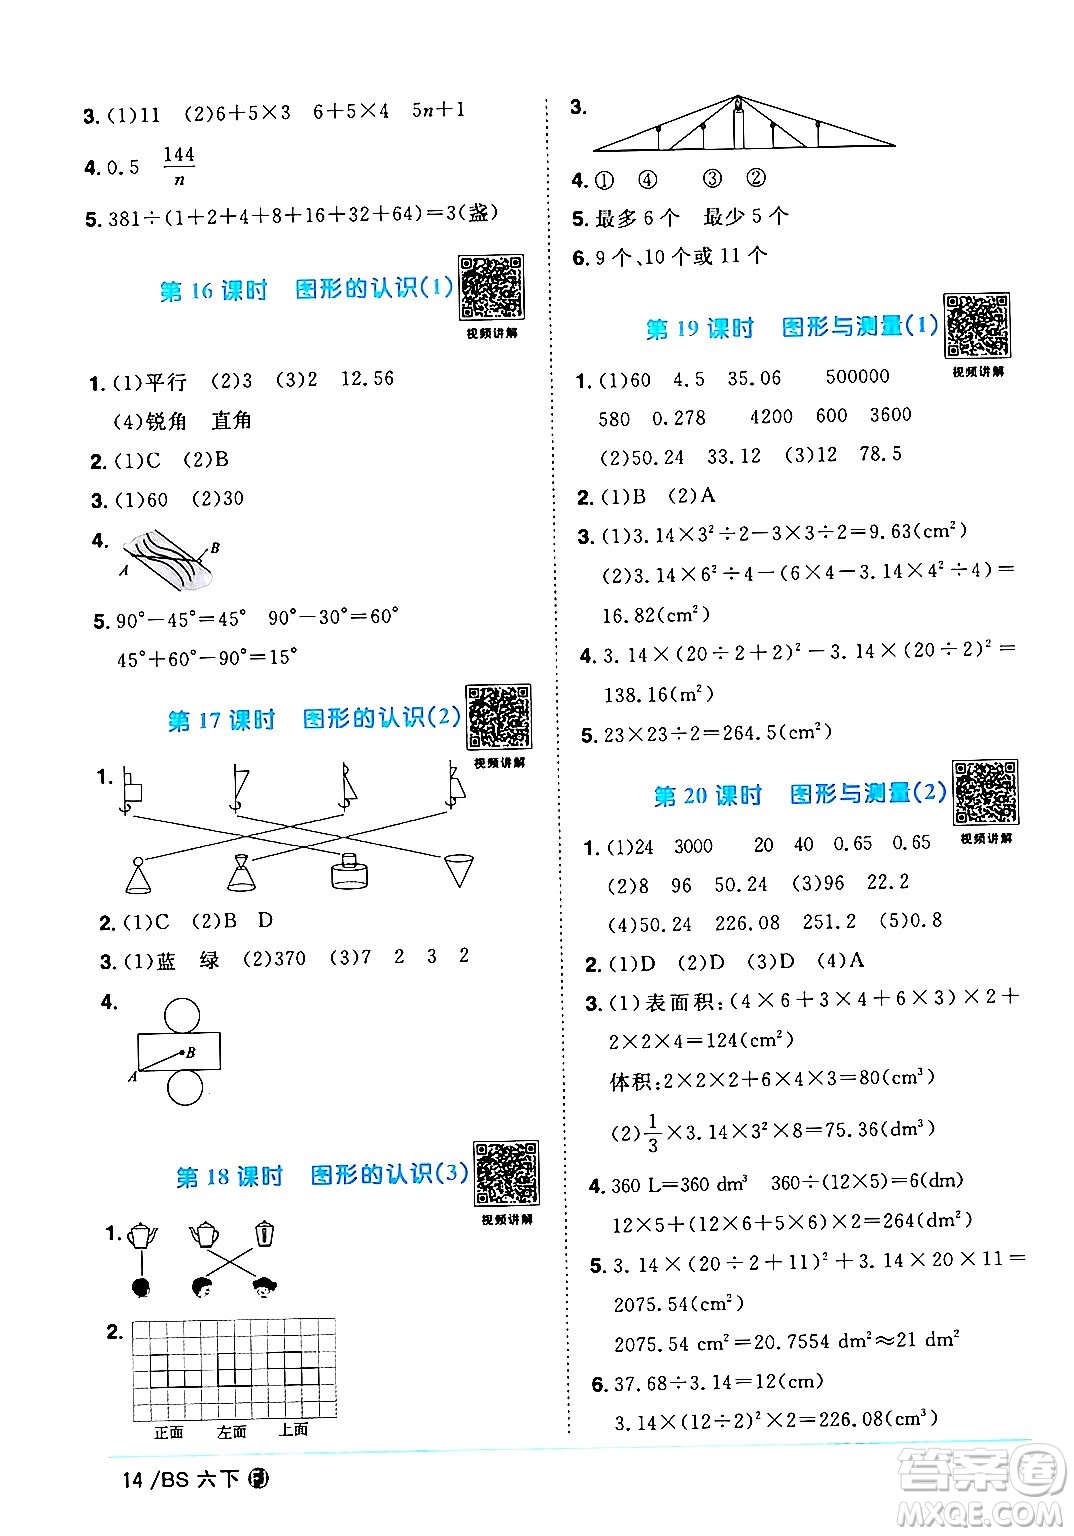 3. (1)11 (2)6+5×3 6+5×4 5n+1
4. 0.5 144/n
5. 381÷(1+2+4+8+16+32+64)=3(盏)
第 16 课时 图形的认识(1)
视频讲解
1. (1)平行 (2)3 (3)2 12.56
(4)锐角 直角
2. (1)C (2)B
3. (1)60 (2)30
4.
A B
5. 90°-45°=45° 90°-30°=60°
45°+60°-90°=15°
第 17 课时 图形的认识(2)
视频讲解
1.
2. (1)C (2)B D
3. (1)蓝 绿 (2)370 (3)7 2 3 2
4.
A B
第 18 课时 图形的认识(3)
视频讲解
1.
2.
正面 左面 上面
3.
4. ① ④ ③ ②
5. 最多 6 个 最少 5 个
6. 9 个、10 个或 11 个
第 19 课时 图形与测量(1)
视频讲解
1. (1)60 4.5 35.06 500000
580 0.278 4200 600 3600
(2)50.24 33.12 (3)12 78.5
2. (1)B (2)A
3. (1)3.14×3²÷2-3×3÷2=9.63(cm²)
(2)3.14×6²÷4-(6×4-3.14×4²÷4)=
16.82(cm²)
4. 3.14×(20÷2+2)²-3.14×(20÷2)²=
138.16(m²)
5. 23×23÷2=264.5(cm²)
第 20 课时 图形与测量(2)
视频讲解
1. (1)24 3000 20 40 0.65 0.65
(2)8 96 50.24 (3)96 22.2
(4)50.24 226.08 251.2 (5)0.8
2. (1)D (2)D (3)D (4)A
3. (1)表面积:(4×6+3×4+6×3)×2+
2×2×4=124(cm²)
体积:2×2×2+6×4×3=80(cm³)
(2)1/3×3.14×3²×8=75.36(dm³)
4. 360 L=360 dm³ 360÷(12×5)=6(dm)
12×5+(12×6+5×6)×2=264(dm²)
5. 3.14×(20÷2+11)²+3.14×20×11=
2075.54(cm²)
2075.54 cm²=20.7554 dm²≈21 dm²
6. 37.68÷3.14=12(cm)
3.14×(12÷2)²×2=226.08(cm³)
14 /BS 六下
答案卷
MXQE.COM